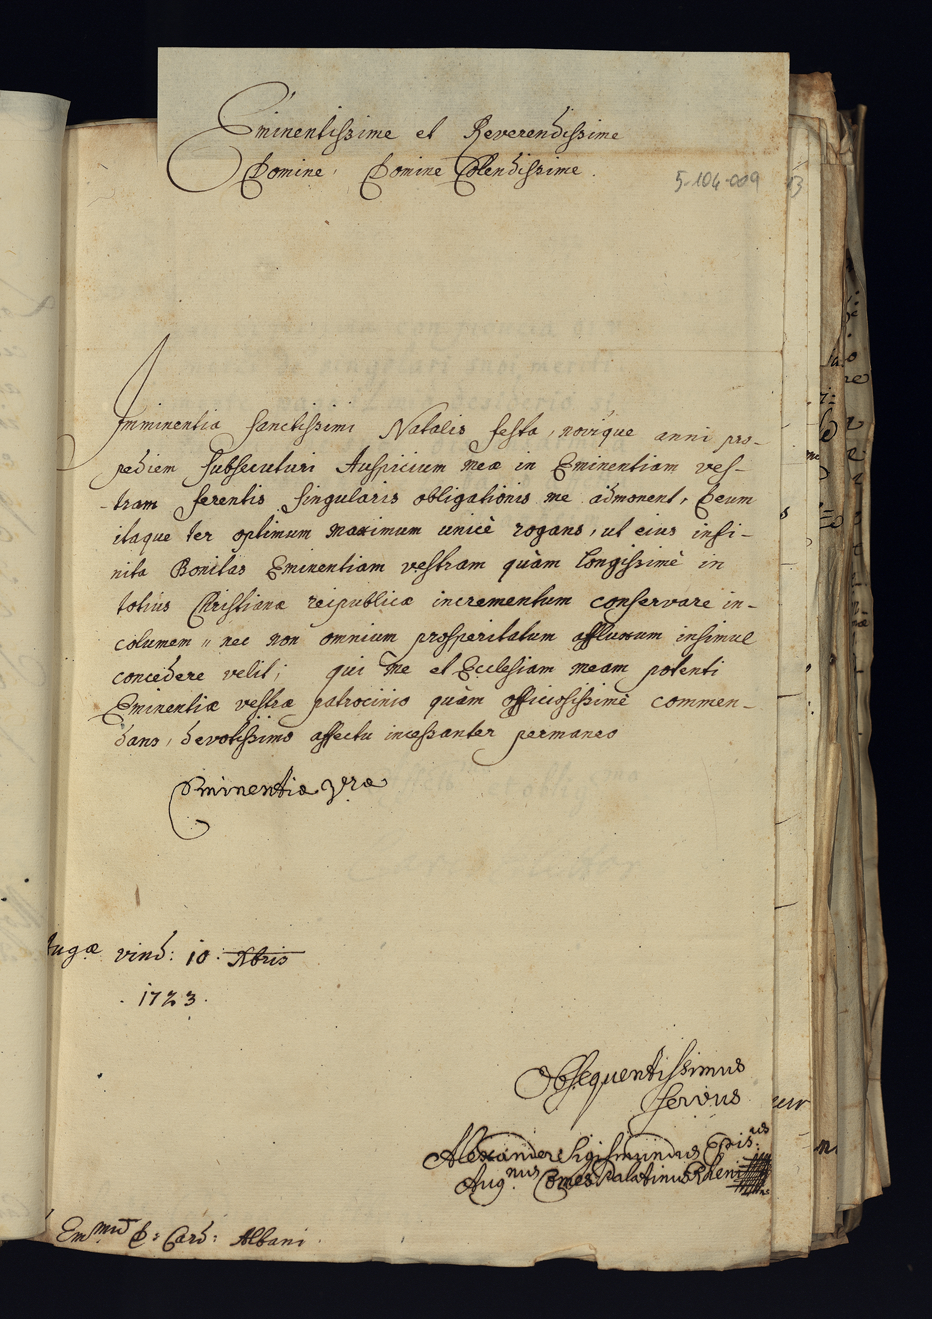 Eminentissime et Reverendissime
Domine, Domine Colendissime.
5-104-009
Imminentia sanctissimi Natalis festa, novique anni pro-
pediem subsecuturi Auspicium meæ in Eminentiam ves-
tram ferentis singularis obligationis me admonent, Deum
itaque ter optimum maximum unicè rogans, ut eius infi-
nita Bonitas Eminentiam vestram quàm longissimè in
totius Christianæ reipublicæ incrementum conservare in-
columem, nec non omnium prosperitatum affluxum insimul
concedere velit; qui me et Ecclesiam meam potenti
Eminentiæ vestræ patrocinio quàm officiosissimè commen-
dans, devotissimo affectu incessanter permaneo
Eminentiæ Vræ
Augæ vind: 10. Xbris
1723.
Obsequentissimus
servus
Alexander Sigismundus Epis:
Augnus Comes Palatinus Rheni
Emmo D: Card: Albani.